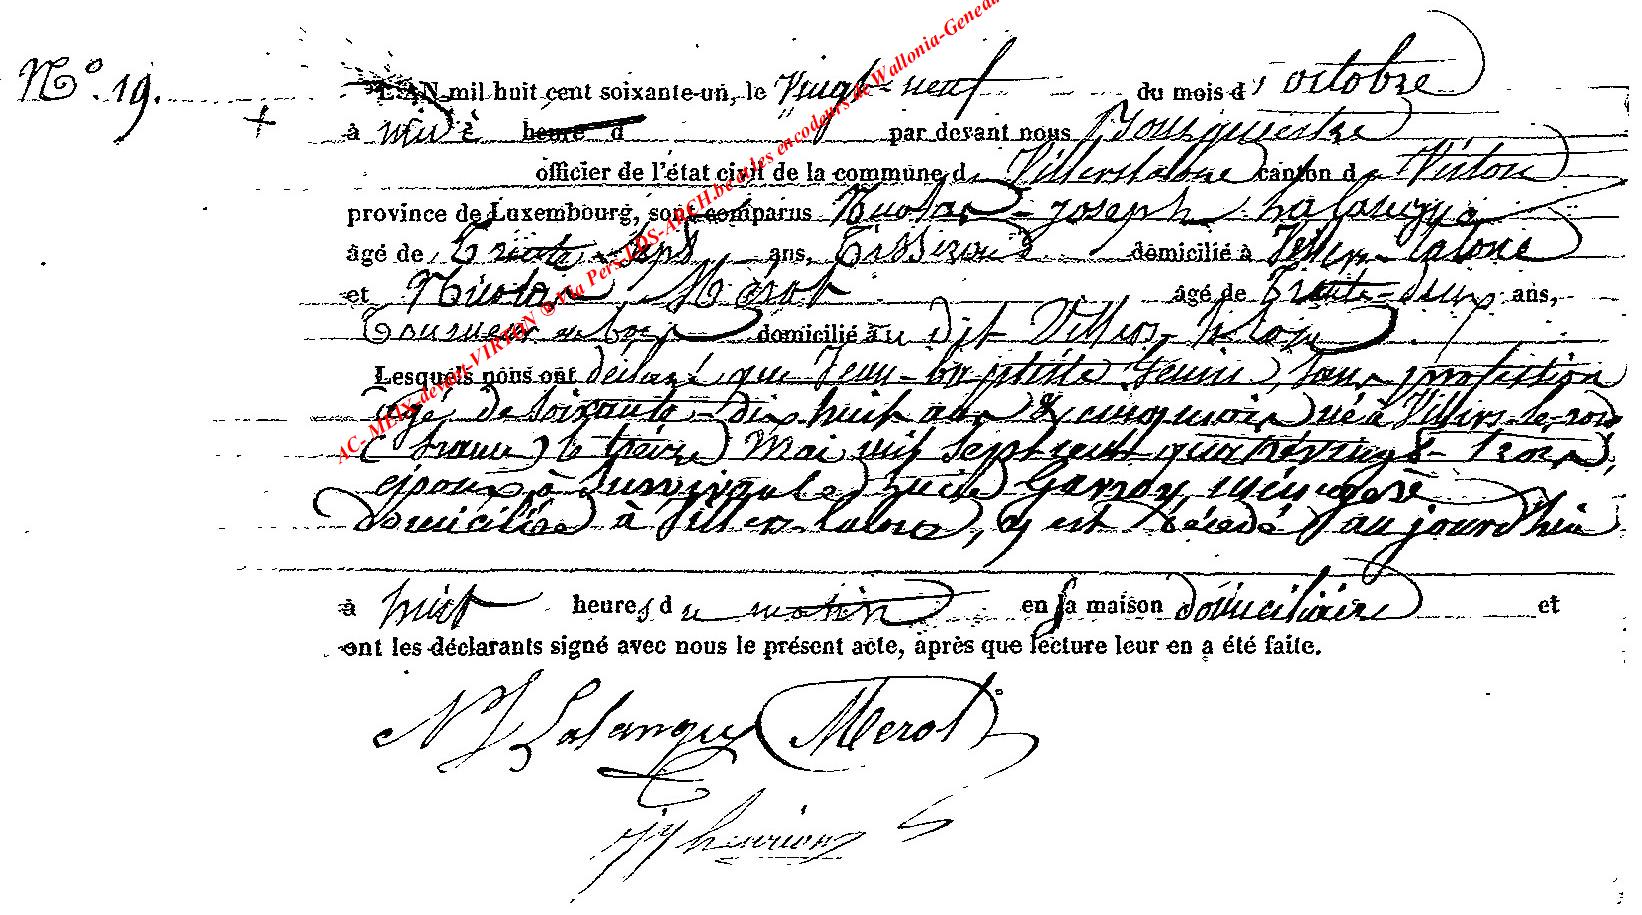 N° 19.
L'AN mil huit cent soixante-un, le vingt-neuf du mois d'octobre
à midi heure d par devant nous Bourguemestre
officier de l'état civil de la commune d Villerslaloue canton de Virton
province de Luxembourg, sont comparus Nicolas-Joseph Lalangue
âgé de trente sept ans, Tisserand domicilié à Villers-laloue
et Nicolas Mérot âgé de Trente-deux ans,
Tourneur en bois domicilié au dit Villers-laloue
Lesquels nous ont déclaré que Jean-baptiste sans profession
agé de soixante-dix huit ans & cinq mois né à Villers-le-rond
(france) le treize Mai mil sept cent quatrevingt-trois,
époux à survivante Lucie ménagère
domiciliée à Villers-laloue, y est décédé aujourd'hui
à huit heures du matin en sa maison domiciliaire et
ont les déclarants signé avec nous le présent acte, après que lecture leur en a été faite.
NJ Lalangue Merot
henrion
AC-MEIX-devant-VIRTON © Via Pers-LDS-ARCH.be et les encodeurs de Wallonia-Genea